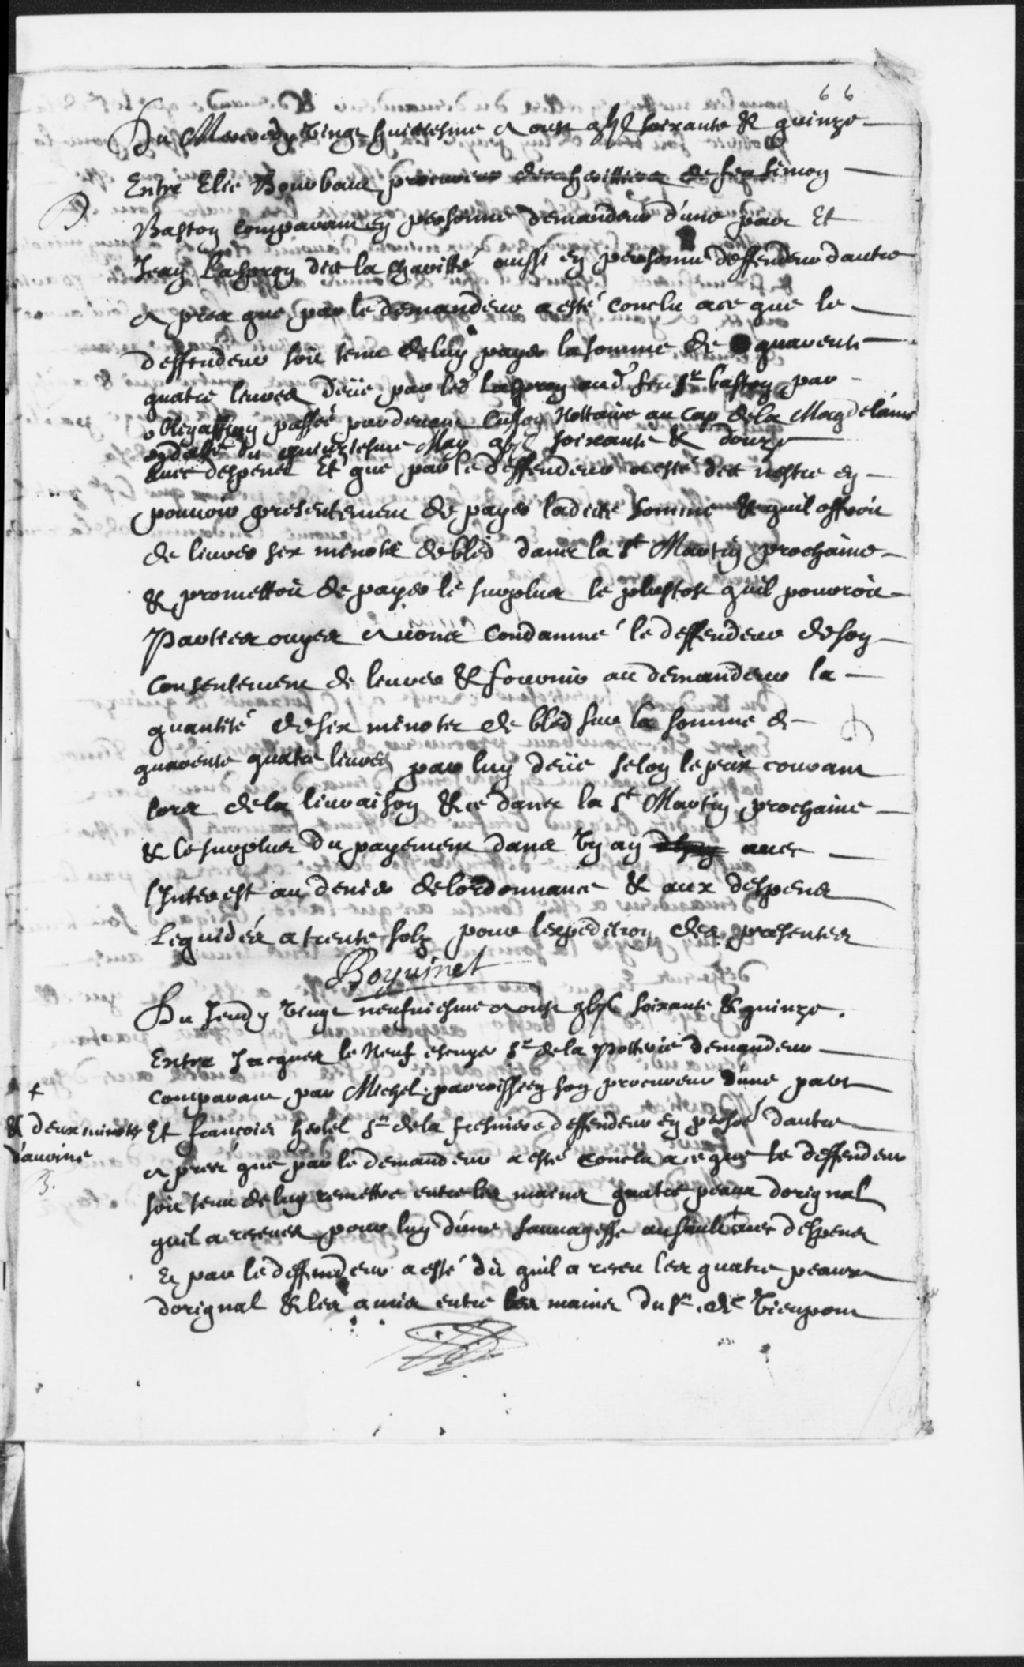 66
Du Mercredy Vingt huictiesme Aoust gbjC soixante & quinze
Entre Elie Bourbaux procureur des heritiers de feu Simon
Baston comparant en personne demandeur d'une part Et
Jean Laspron dit la Charitté aussi en personne deffendeur dautre
Apres que par le demandeur a esté conclu ace que le
deffendeur soit tenu deluy payer la somme de quarente
quatre livres deüe par led Laspron aud feu Sr baston par
obligation passée pardevant Cusson Nottaire au Cap de la Magdelaine
en datte du quinziesme May gbjC soixante & douze
avec despens Et que par le deffendeur a esté dit nestre en
pouvoir presentement de payer ladicte somme & quil offroit
de livrer six minots de bled dans la St Martin prochaine
& promettoit de payer le surplus le plustost quil pourroit
Parties ouyes avons condamné le deffendeur de son
consentement de livrer & fournir au demandeur la
quantité de six minots de bled sur la somme de
quarente quatre livres par luy deüe selon le prix courant
lors de la livraison & ce dans la St Martin prochaine
& le surplus du payement dans un an avec
l'Interest au denier de lordonnance & aux despens
Liquidés a trente solz pour lexpedition des presentes
Boyvinet
Du Jeudy Vingt neufviesme Aoust gbjC soixante & quinze.
Entre Jacques le Neuf escuyer Sr de la Potterie demandeur
comparant par Michel parroissien son procureur d'une part
Et francois hertel Sr de la fresniere deffendeur en persoe dautre
Apres que par le demandeur a esté conclu a ce que le deffendeur
soit tenu de luy remettre entre les mains quatre peaux dorignal
+
& deux minots
d'avoine
quil a receues pour luy d'une sauvagesse au sault + avec despens
Et par le deffendeur a esté dit quil a receu les quatre peaux
dorignal & les a mis entre les mains du Sr de Vieupont